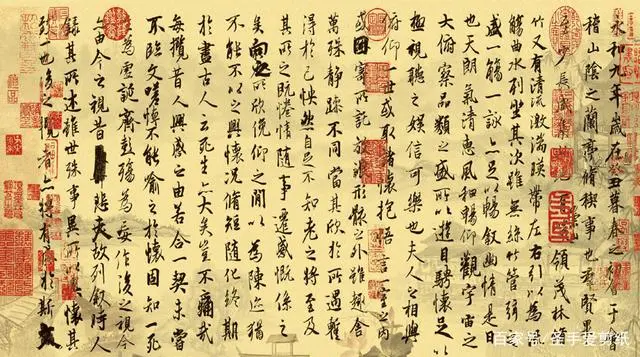 永和九年歲在癸丑暮春之初會于會
稽山陰之蘭亭脩稧事也群賢畢
至少長咸集此地有領茂林脩
竹又有清流激湍暎帶左右引以為
觴曲水列坐其次雖無絲竹管弦之
盛一觴一詠亦足以暢敘幽情是日
也天朗氣清惠風和暢仰觀宇宙之
大俯察品類之盛所以遊目騁懷足以
極視聽之娛信可樂也夫人之相與
俯仰一世或取諸懷抱悟言一室之內
或因寄所託放浪形骸之外雖趣舍
萬殊靜躁不同當其欣於所遇蹔
得於己怏然自足不知老之將至及
其所之既惓情隨事遷感慨係之
矣向之所欣俛仰之間以為陳迹猶
不能不以之興懷況脩短隨化終期
於盡古人云死生亦大矣豈不痛哉
每攬昔人興感之由若合一契未嘗
不臨文嗟悼不能喻之於懷固知一死
生為虛誕齊彭殤為妄作後之視今
亦由今之視昔悲夫故列敘時人
錄其所述雖世殊事異所以興懷其
致一也後之攬者亦將有感於斯文
百家号/圣手爱剪纸